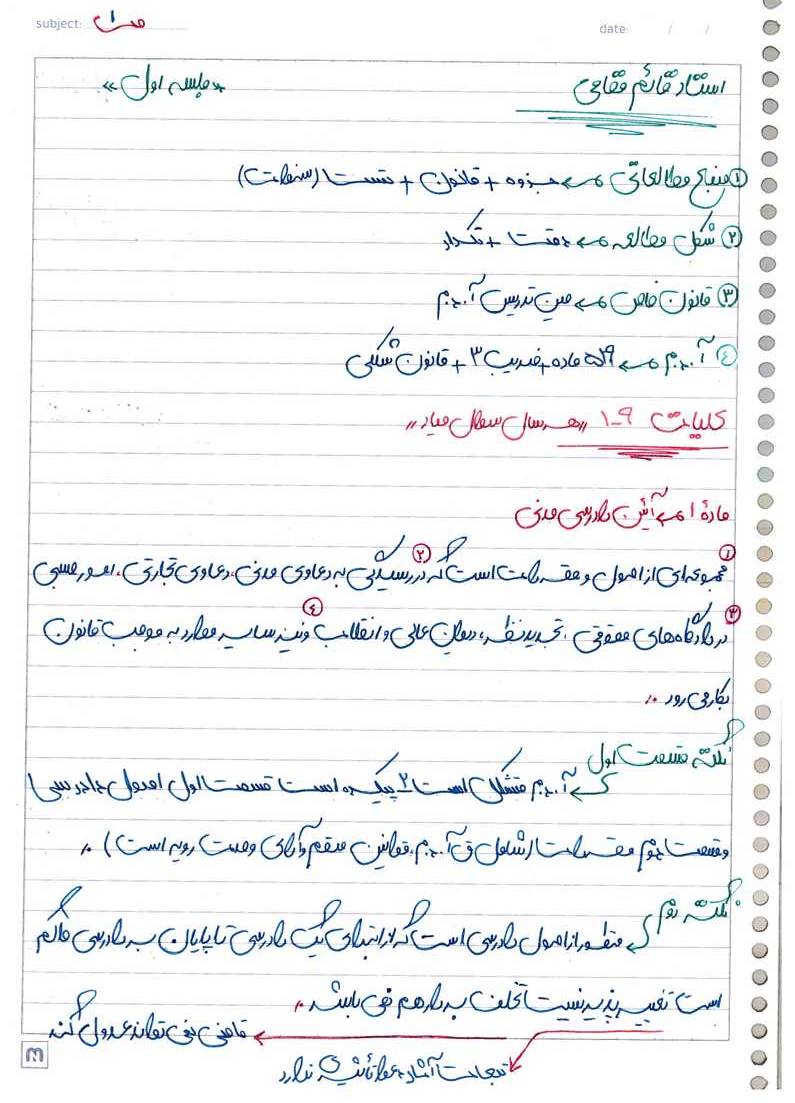 subject: مدنی ۱ date: / /
استاد قائم مقامی «جلسه اول»
① منبع مطالعاتی ← جزوه + قانون + تست (سنوات)
② شکل مطالعه ← دقت + تکرار
③ قانون خاص ← حین تدریس آ.د.م
④ آ.د.م ← ۵۲۹ ماده + ضریب ۳ + قانون شکلی
کلیات ۹-۱ «هر سال سوال میاد»
ماده ۱ ← آئین دادرسی مدنی
① مجموعه‌ای از اصول و مقررات است که در رسیدگی ② به دعاوی مدنی، دعاوی تجارتی، امور حسبی
③ در دادگاه‌های حقوقی، تجدیدنظر، دیوان عالی و انقلاب ④ و نیز سایر موارد به موجب قانون
بکار می رود.
نکته قسمت اول
آ.د.م متشکل است ۲ پیکره است قسمت اول اصول دادرسی
و قسمت دوم مقررات (شامل ق آ.د.م، قوانین و آرای وحدت رویه است).
نکته دوم
منظور از اصول دادرسی است که از ابتدای یک دادرسی تا پایان بر دادرسی حاکم
است تغییر پذیر نیست تخلف بردار هم نمی باشد.
قاضی نمی تواند عدول کند
آثار تاثیری ندارد